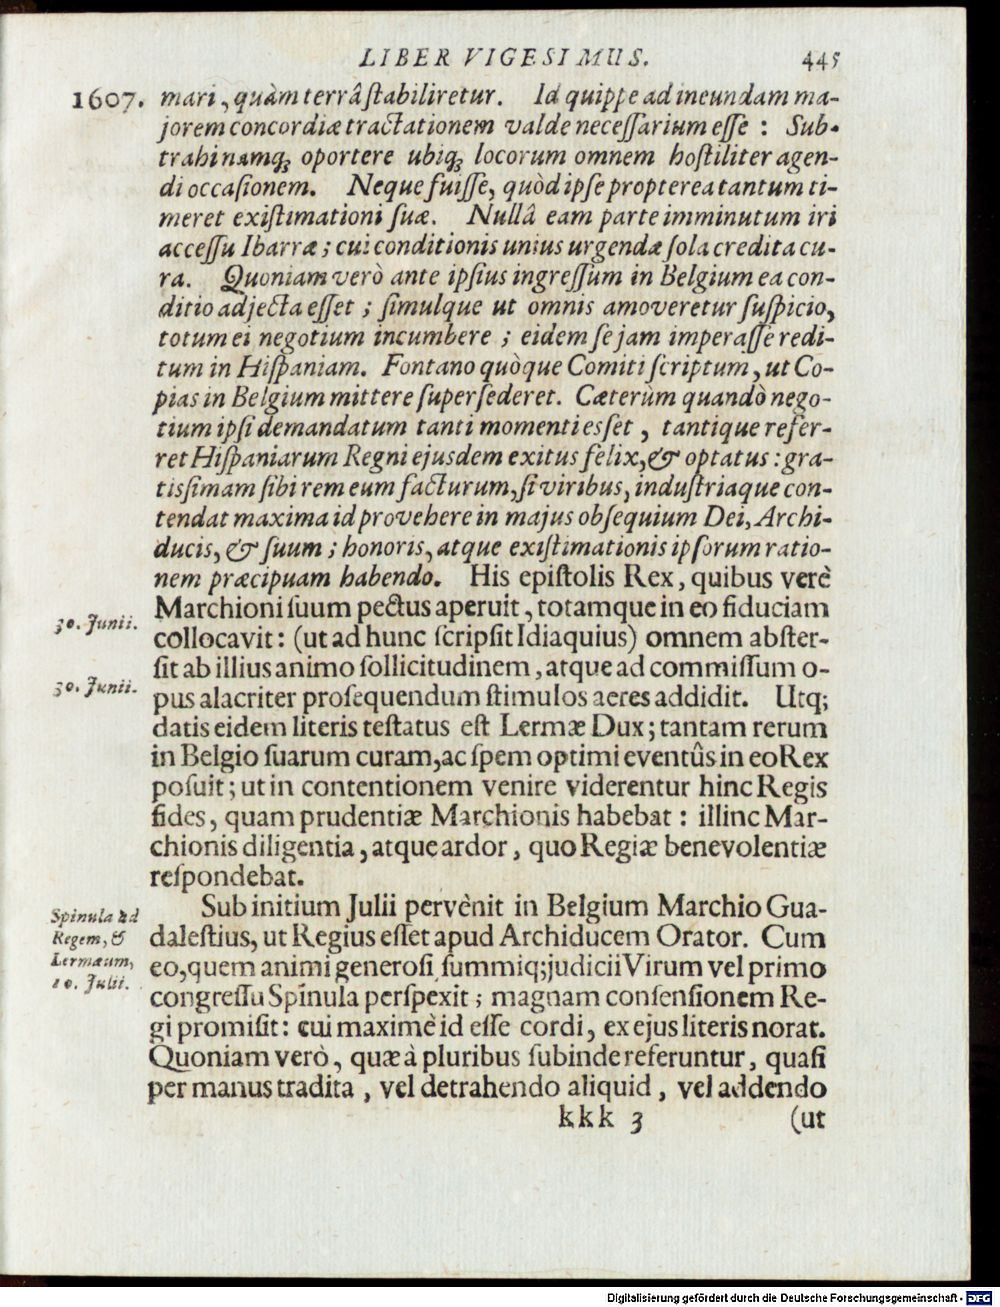 LIBER VIGESIMUS. 445
1607. mari, quàm terrâ ſtabiliretur. Id quippe ad ineundam ma-
jorem concordiæ tractationem valde neceſſarium eſſe : Sub-
trahi namq; oportere ubiq; locorum omnem hoſtiliter agen-
di occaſionem. Neque fuiſſe, quòd ipſe propterea tantum ti-
meret exiſtimationi ſuæ. Nullâ eam parte imminutum iri
acceſſu Ibarræ ; cui conditionis unius urgendæ ſola credita cu-
ra. Quoniam verò ante ipſius ingreſſum in Belgium ea con-
ditio adjecta eſſet ; ſimulque ut omnis amoveretur ſuſpicio,
totum ei negotium incumbere ; eidem ſe jam imperaſſe redi-
tum in Hiſpaniam. Fontano quòque Comiti ſcriptum, ut Co-
pias in Belgium mittere ſuperſederet. Cæterùm quandò nego-
tium ipſi demandatum tanti momenti esſet , tantique refer-
ret Hiſpaniarum Regni ejusdem exitus felix, & optatus : gra-
tisſimam ſibi rem eum facturum, ſi viribus, induſtriaque con-
tendat maxima id provehere in majus obſequium Dei, Archi-
ducis, & ſuum ; honoris, atque exiſtimationis ipſorum ratio-
nem præcipuam habendo. His epiſtolis Rex, quibus verè
Marchioni ſuum pectus aperuit, totamque in eo fiduciam
30. Junii.
collocavit: (ut ad hunc ſcripſit Idiaquius) omnem abſter-
ſit ab illius animo ſollicitudinem, atque ad commiſſum o-
30. Junii.
pus alacriter proſequendum ſtimulos aeres addidit. Utq;
datis eidem literis teſtatus eſt Lermæ Dux; tantam rerum
in Belgio ſuarum curam, ac ſpem optimi eventûs in eo Rex
poſuit; ut in contentionem venire viderentur hinc Regis
fides, quam prudentiæ Marchionis habebat : illinc Mar-
chionis diligentia, atque ardor, quo Regiæ benevolentiæ
reſpondebat.
Sub initium Julii pervènit in Belgium Marchio Gua-
Spinula ad
Regem, &
Lermæum,
10. Julii.
daleſtius, ut Regius eſſet apud Archiducem Orator. Cum
eo, quem animi generoſi ſummiq; judicii Virum vel primo
congreſſu Spinula perſpexit ; magnam conſenſionem Re-
gi promiſit: cui maximè id eſſe cordi, ex ejus literis norat.
Quoniam verò, quæ à pluribus ſubinde referuntur, quaſi
per manus tradita, vel detrahendo aliquid, vel addendo
kkk 3 (ut
Digitalisierung gefördert durch die Deutsche Forschungsgemeinschaft - DFG